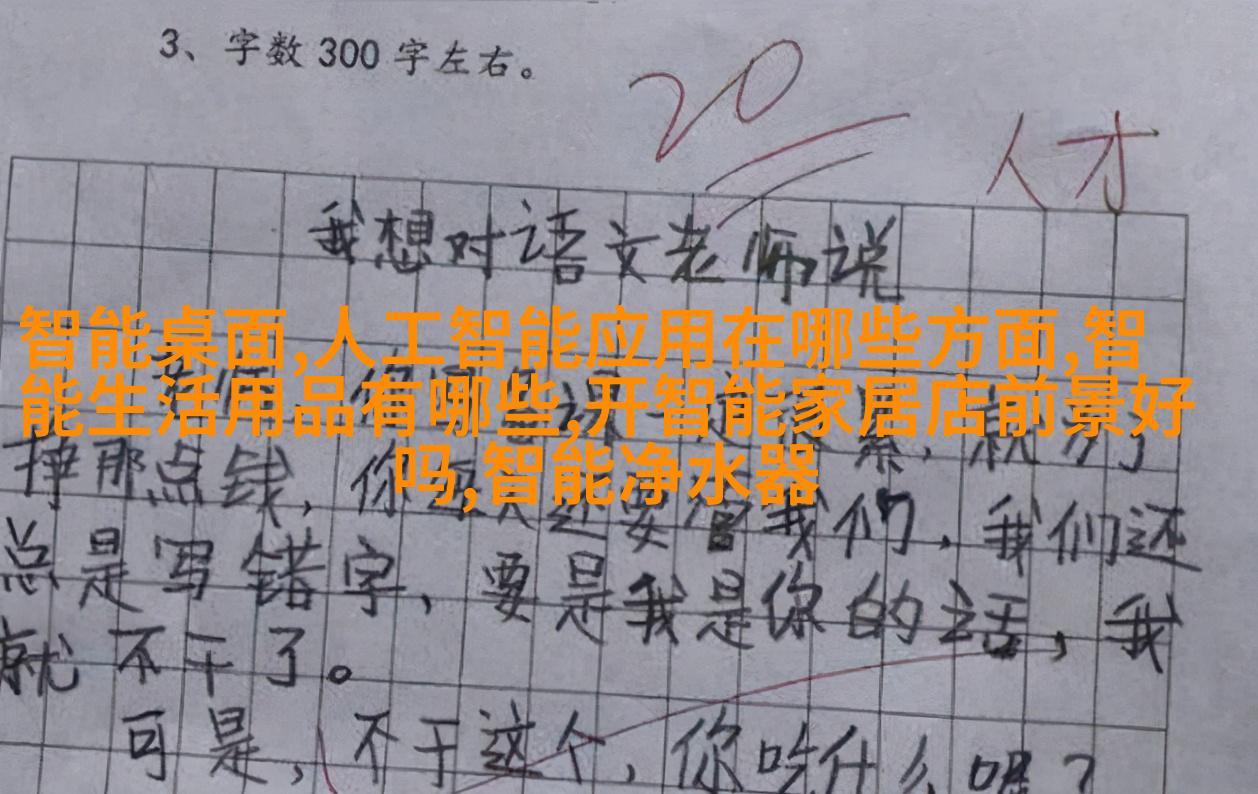 3、字数300字左右。
20
人才
我想对语文老师说
智能桌面,人工智能应用在哪些方面,智
能生活用品有哪些,开智能家居店前景好
吗,智能净水器
挣那点钱，你 还要管我们，我们还
总是写错字，要是我是你的话，我
就不干了。
可是，不干这个，你吃什么呢？